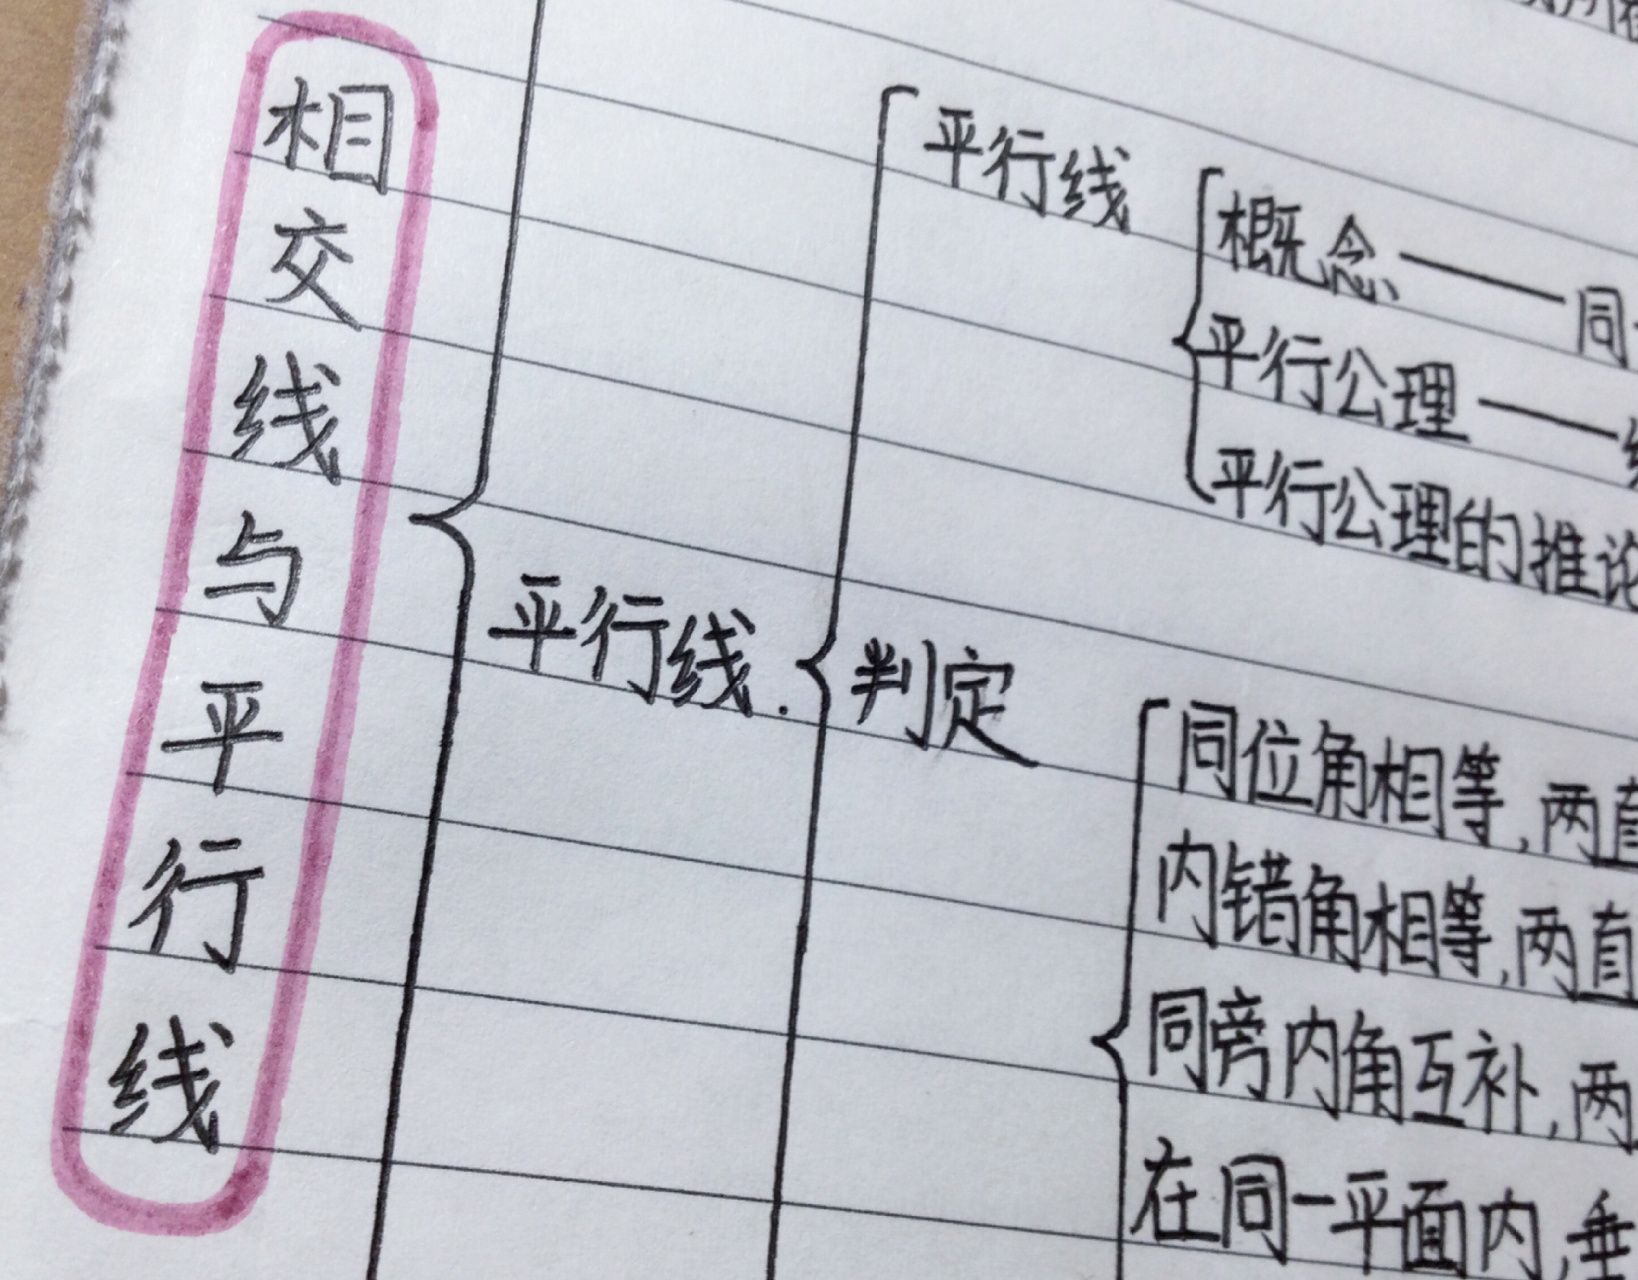 相交线与平行线
平行线
概念——同
平行公理——
平行公理的推论
平行线.
判定
同位角相等,两直
内错角相等,两直
同旁内角互补,两
在同一平面内,垂